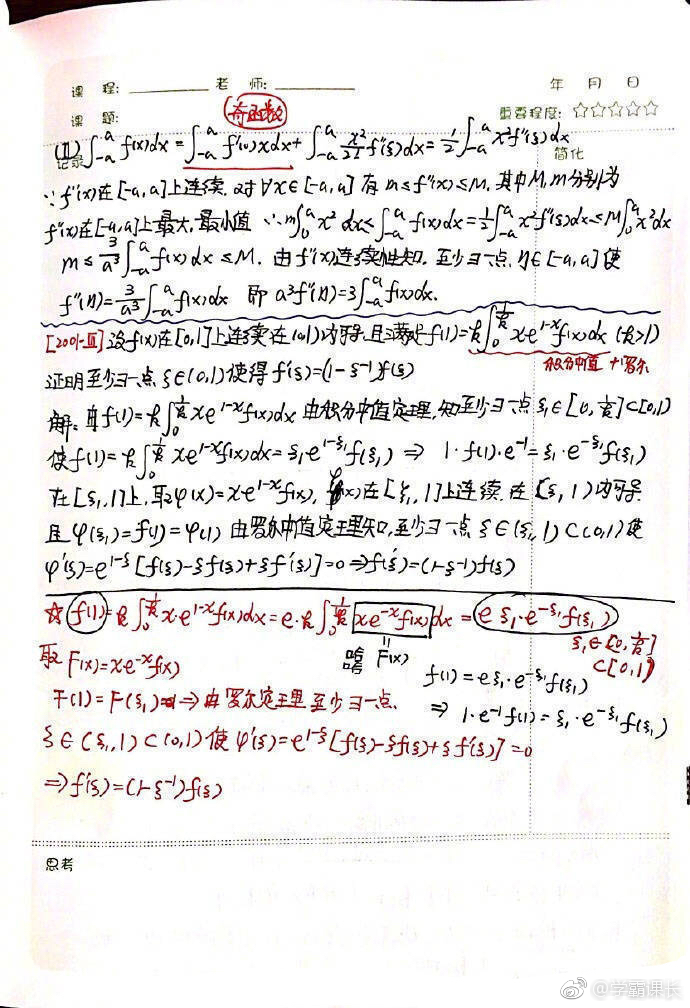 课 程: 老 师: 年 月 日
课 题: 重要程度: ☆☆☆☆☆
奇函数
记录 简化
(II) ∫_{-a}^{a} f(x)dx = ∫_{-a}^{a} f'(0)xdx + ∫_{-a}^{a} x²/2! f''(ξ)dx = 1/2 ∫_{-a}^{a} x²f''(ξ)dx
∵ f''(x)在[-a,a]上连续.对∀x∈[-a,a] 有 m≤f''(x)≤M. 其中M,m分别为
f''(x)在[-a,a]上最大,最小值 ∵ m∫_0^a x²dx≤∫_{-a}^{a} f(x)dx = 1/2 ∫_{-a}^{a} x²f''(ξ)dx≤M∫_0^a x²dx
m ≤ 3/a³ ∫_{-a}^{a} f(x)dx ≤ M. 由f''(x)连续性知. 至少∃一点 η∈[-a,a]使
f''(η) = 3/a³ ∫_{-a}^{a} f(x)dx 即 a³f''(η)=3∫_{-a}^{a} f(x)dx.
[2001-III] 设f(x)在[0,1]上连续在(0,1)内可导且满足 f(1)=k∫_0^{1/k} xe^{1-x}f(x)dx (k>1)
积分中值+罗尔
证明至少∃一点 ξ∈(0,1)使得f'(ξ)=(1-ξ^{-1})f(ξ)
解: 由f(1)=k∫_0^{1/k} xe^{1-x}f(x)dx 由积分中值定理,知至少∃一点 ξ₁∈[0,1/k]⊂[0,1)
使f(1)=k∫_0^{1/k} xe^{1-x}f(x)dx=ξ₁e^{1-ξ₁}f(ξ₁) ⇒ 1·f(1)·e^{-1}=ξ₁·e^{-ξ₁}f(ξ₁)
在[ξ₁,1]上,取φ(x)=x·e^{1-x}f(x), φ(x)在[ξ₁,1]上连续.在(ξ₁,1)内可导
且φ(ξ₁)=f(1)=φ(1) 由罗尔中值定理知,至少∃一点 ξ∈(ξ₁,1)⊂(0,1)使
φ'(ξ)=e^{1-ξ}[f(ξ)-ξf(ξ)+ξf'(ξ)]=0⇒f'(ξ)=(1-ξ^{-1})f(ξ)
☆ f(1)=k∫_0^{1/k} x·e^{1-x}f(x)dx=e·k∫_0^{1/k} xe^{-x}f(x)dx = eξ₁·e^{-ξ₁}f(ξ₁)
ξ₁∈[0,1/k]
⊂[0,1)
取 F(x)=xe^{-x}f(x)
= F(x)
f(1)=eξ₁·e^{-ξ₁}f(ξ₁)
F(1)=F(ξ₁) ⇒由罗尔定理 至少∃一点
⇒ 1·e^{-1}f(1)=ξ₁·e^{-ξ₁}f(ξ₁)
ξ∈(ξ₁,1)⊂(0,1)使φ'(ξ)=e^{1-ξ}[f(ξ)-ξf(ξ)+ξf'(ξ)]=0
⇒f'(ξ)=(1-ξ^{-1})f(ξ)
思考
@学霸课长